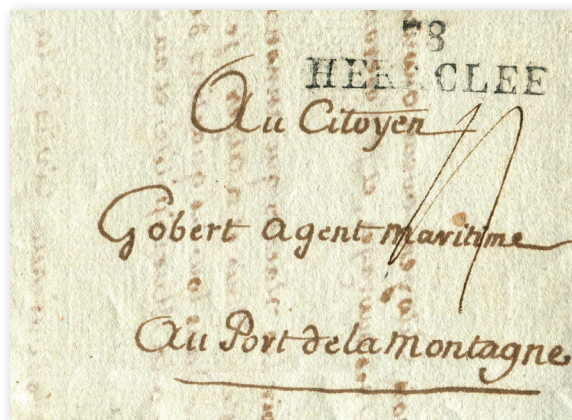 78
HERACLEE
Au Citoyen
Gobert agent maritime
Au Port de la Montagne